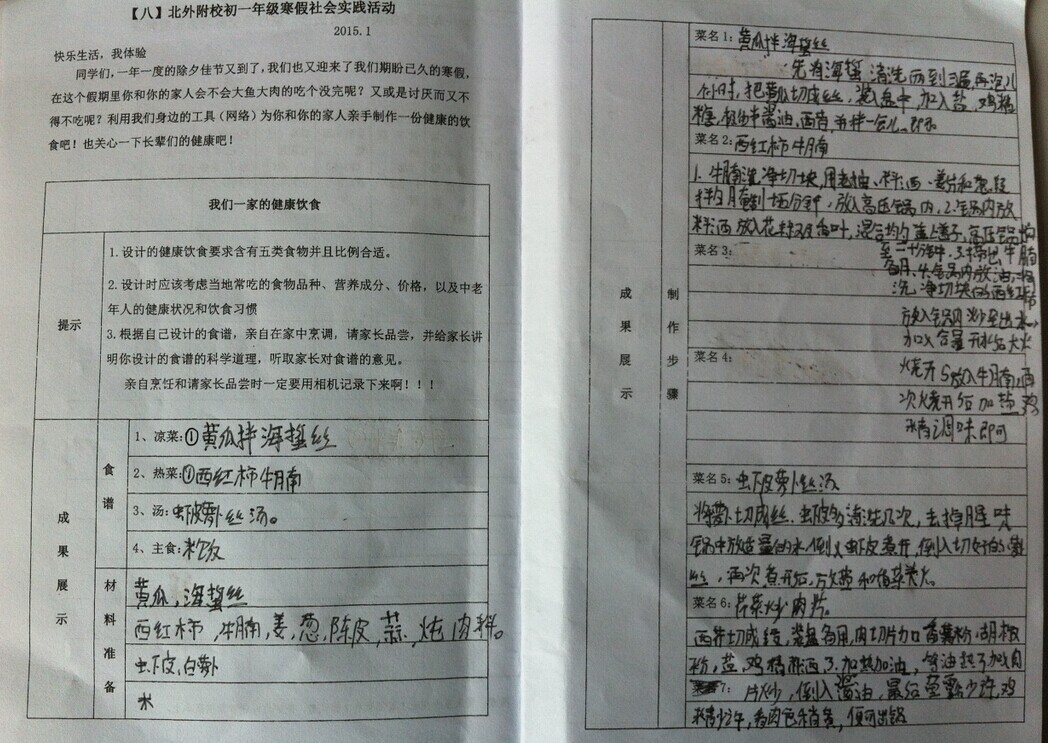 【八】北外附校初一年级寒假社会实践活动
2015.1
快乐生活，我体验
同学们，一年一度的除夕佳节又到了，我们也又迎来了我们期盼已久的寒假，
在这个假期里你和你的家人会不会大鱼大肉的吃个没完呢？又或是讨厌而又不
得不吃呢？利用我们身边的工具（网络）为你和你的家人亲手制作一份健康的饮
食吧！也关心一下长辈们的健康吧！
我们一家的健康饮食
提示
1.设计的健康饮食要求含有五类食物并且比例合适。
2.设计时应该考虑当地常吃的食物品种、营养成分、价格，以及中老
年人的健康状况和饮食习惯
3.根据自己设计的食谱，亲自在家中烹调，请家长品尝，并给家长讲
明你设计的食谱的科学道理，听取家长对食谱的意见。
亲自烹饪和请家长品尝时一定要用相机记录下来啊！！！
成果展示
食谱
1、凉菜：①黄瓜拌海蜇丝
2、热菜：①西红柿牛腩
3、汤：虾皮萝卜丝汤。
4、主食：米饭
材料准备
黄瓜，海蜇丝
西红柿，牛腩，姜，葱，陈皮，蒜，炖肉料。
虾皮，白萝卜
水
成果展示
制作步骤
菜名1：黄瓜拌海蜇丝
先将海蜇清洗两到三遍，再沉几
个小时，把黄瓜切成丝，装盘中，加入盐，鸡精
糖，酱油，西昔，拌一会儿即可
菜名2：西红柿牛腩
1.牛腩洗净切块，用老抽、料酒、姜片和葱段
拌匀腌制十五分钟，放入高压锅内，2.锅内放
料酒放入花椒及香叶，混合均匀盖上盖子，高压锅
菜名3：
至二十分钟，3.捞出牛腩
备用，4.锅内放油，将
洗净切块的西红柿
放入锅内炒至出水，
加入合量开水后大火
菜名4：
烧开5放入牛腩，再
次烧开后加盐，鸡
精调味即可
菜名5：虾皮萝卜丝汤
将萝卜切成丝，虾皮多清洗几次，去掉腥味
锅中放适量的水，倒入虾皮煮开，倒入切好的萝
丝，再次煮开后，放盐和香菜关火。
菜名6：芹菜炒肉片。
西芹切成段，装盘备用，肉切片加番薯粉，胡椒
粉，盐，鸡精酢酒，3.加热加油，等油热了加入肉
7：片炒，倒入酱油，最后盐少许，鸡
精少许，看肉色稍黄，便可出锅